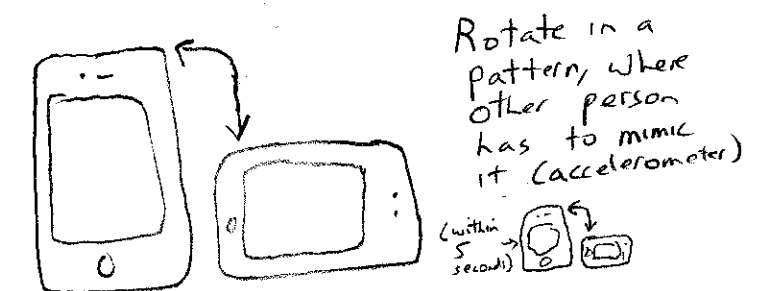 Rotate in a
pattern, where
other person
has to mimic
it (accelerometer)
(within
5
seconds)